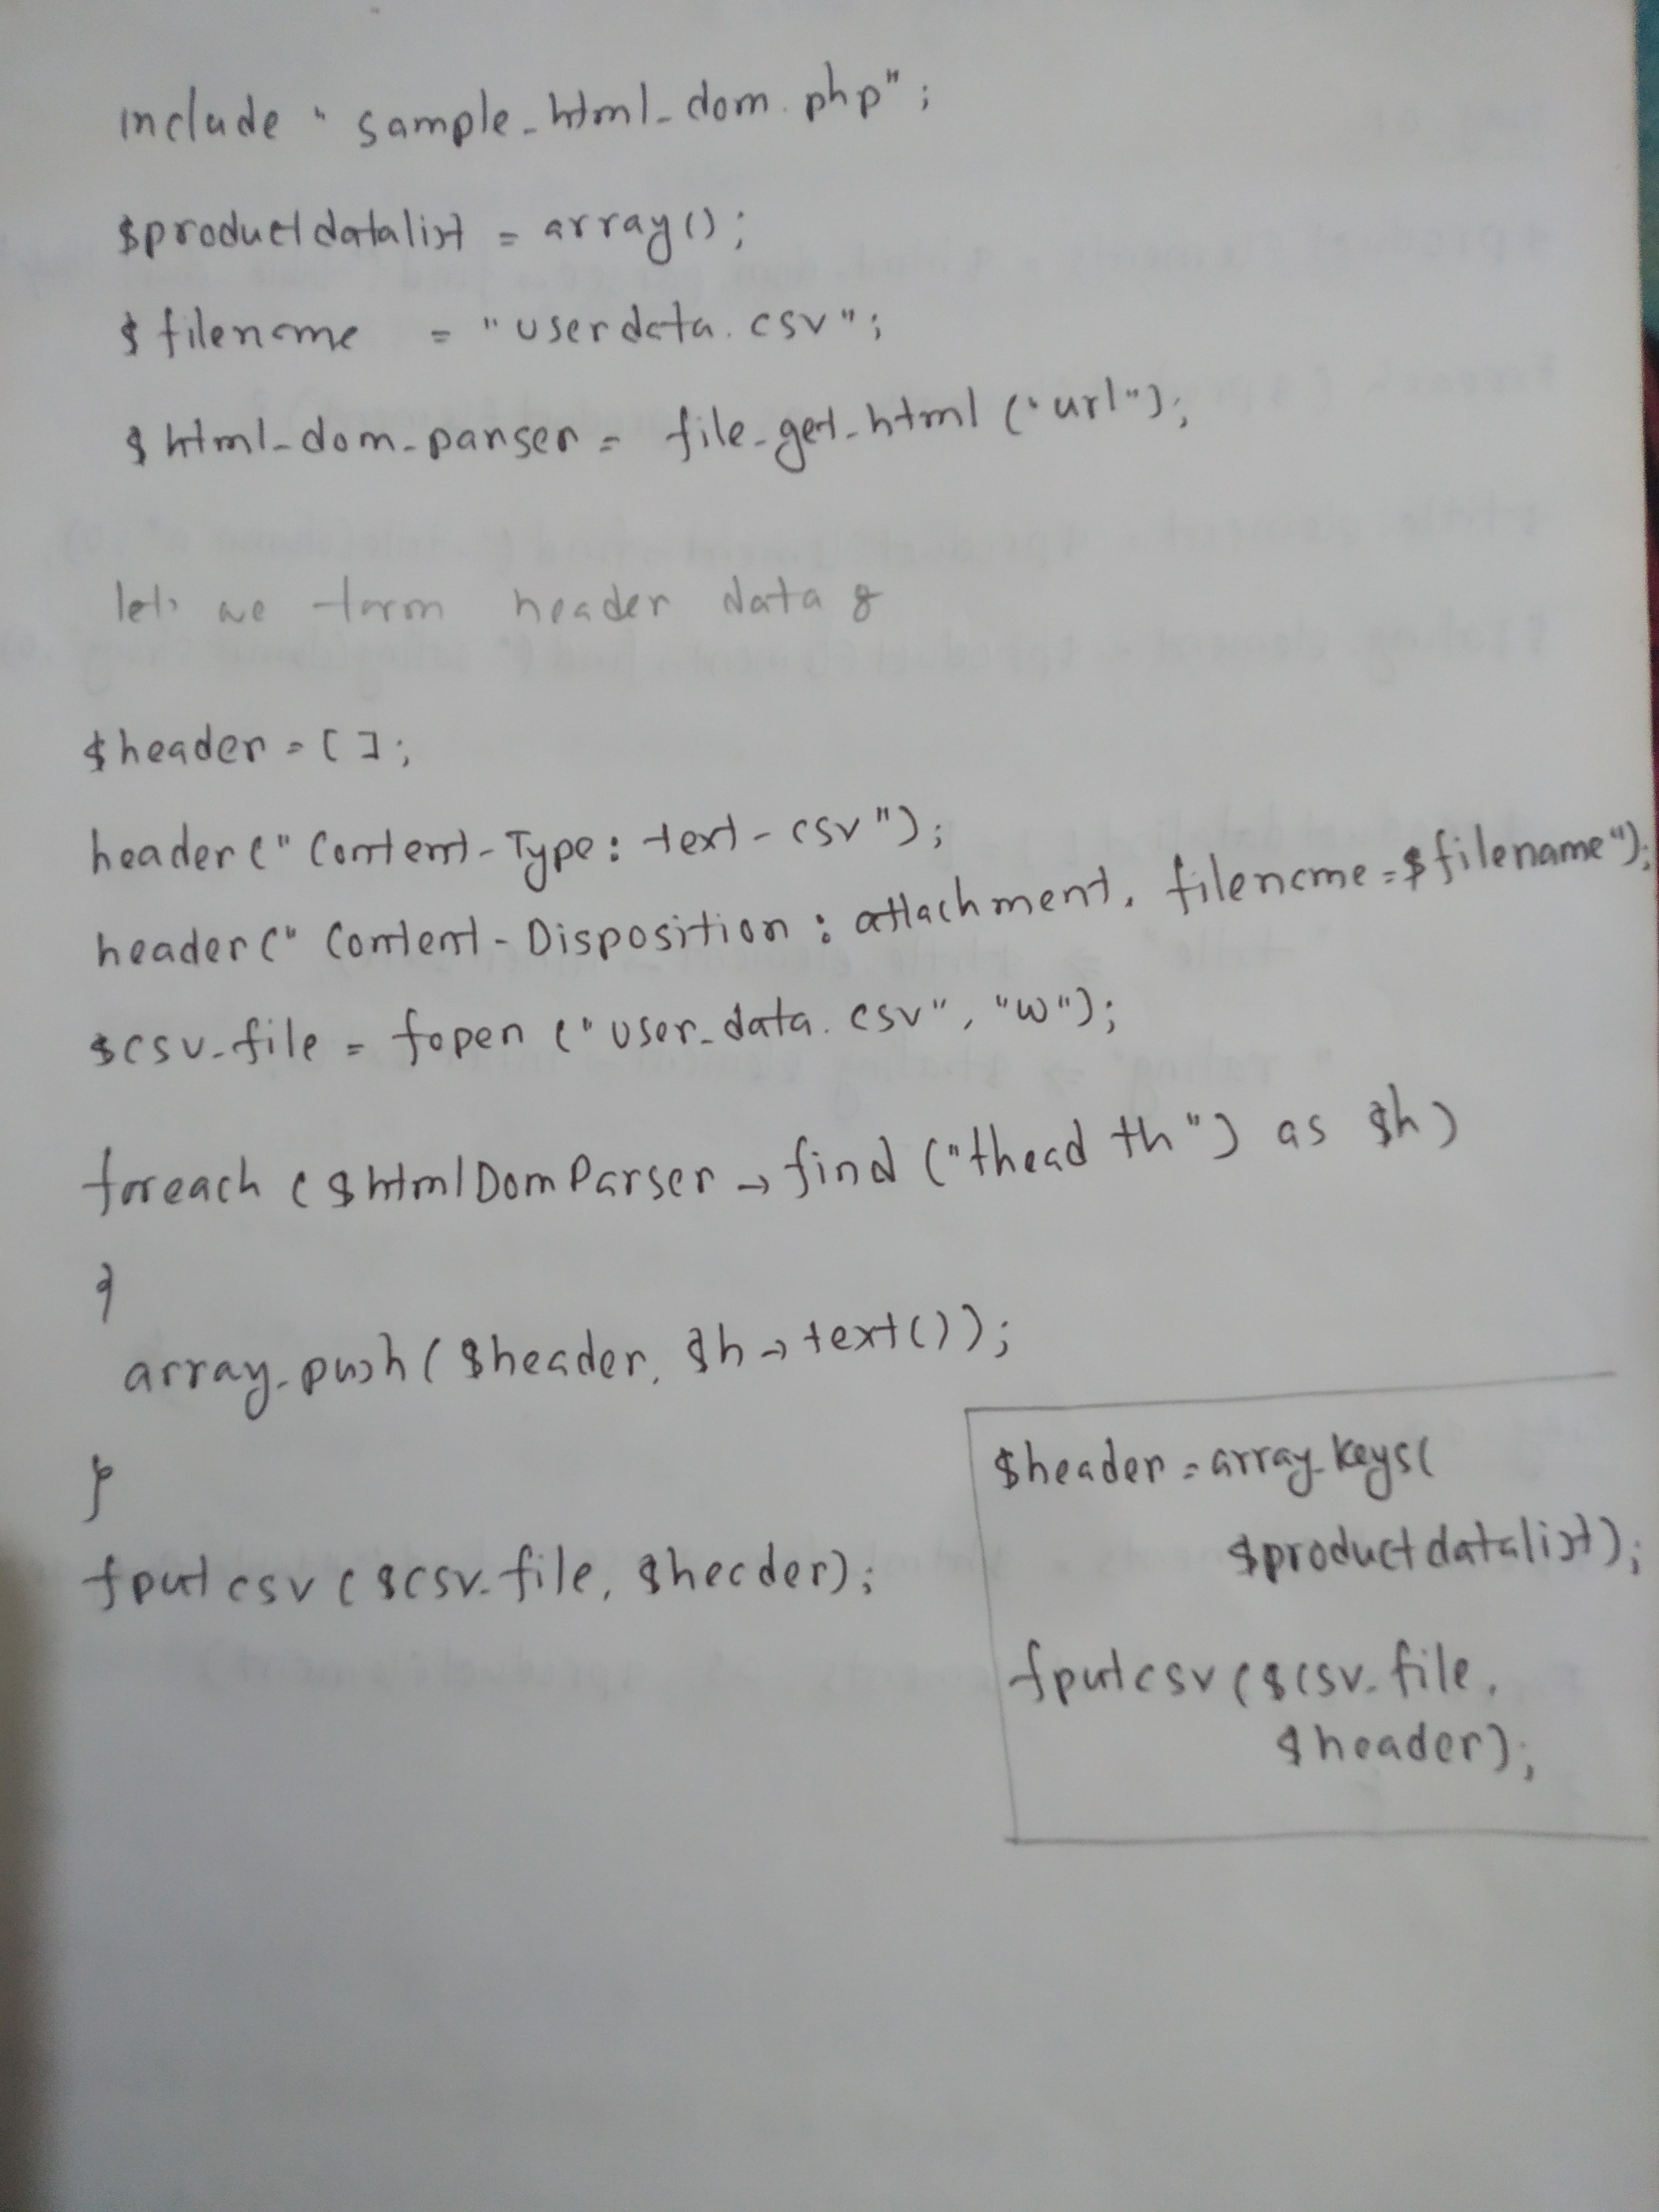 include "sample_html_dom.php";
$productdatalist = array();
$filename = "userdata.csv";
$html_dom_parser = file_get_html("url");
let, we form header data &
$header = [];
header("Content-Type: text-csv");
header("Content-Disposition: attachment, filename=$filename");
$csv_file = fopen("user_data.csv", "w");
foreach ($htmlDomParser → find("thead th") as $h)
{
array_push($header, $h → text());
}
fputcsv($csv_file, $header);
$header = array_keys(
$productdatalist);
fputcsv($csv_file,
$header);